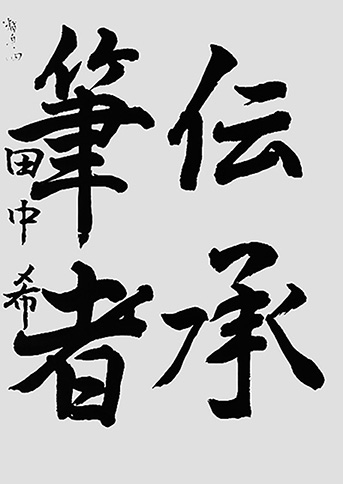 伝承
筆者
田中希